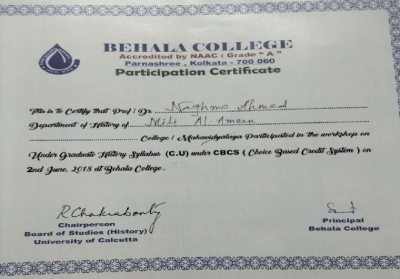 BEHALA COLLEGE
Accredited by NAAC : Grade " A "
Parnashree , Kolkata - 700 060
Participation Certificate
This is to Certify that Prof / Dr. Naghma Ahmed
Department of History of Milli Al-Ameen
College / Mahavidyalaya Participated in the workshop on
Under Graduate History Syllabus (C.U) under CBCS ( Choice Based Credit System ) on
2nd June, 2018 at Behala College.
R Chakrabarty
Chairperson
Board of Studies (History)
University of Calcutta
Principal
Behala College